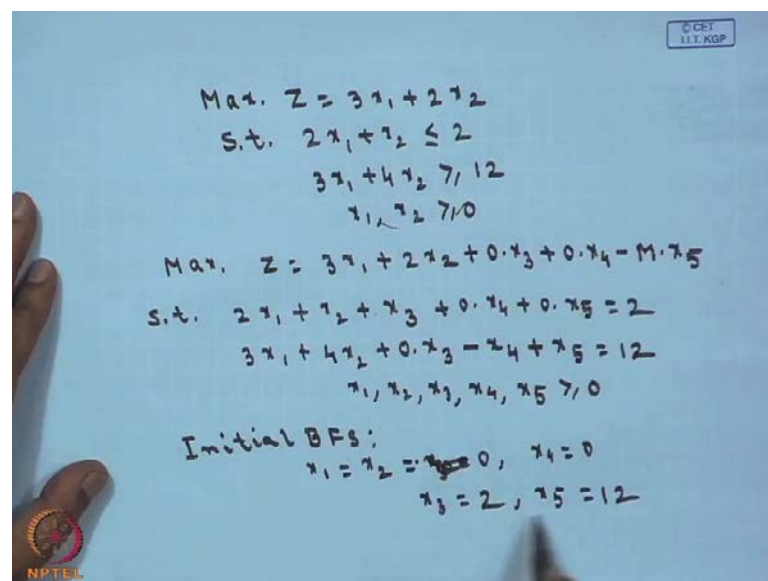 © CET
I.I.T. KGP
Max. Z = 3x₁ + 2x₂
S.t. 2x₁ + x₂ ≤ 2
3x₁ + 4x₂ ≥ 12
x₁, x₂ ≥ 0
Max. Z = 3x₁ + 2x₂ + 0·x₃ + 0·x₄ - M·x₅
S.t. 2x₁ + x₂ + x₃ + 0·x₄ + 0·x₅ = 2
3x₁ + 4x₂ + 0·x₃ - x₄ + x₅ = 12
x₁, x₂, x₃, x₄, x₅ ≥ 0
Initial BFS:
x₁ = x₂ = 0, x₄ = 0
x₃ = 2, x₅ = 12
NPTEL